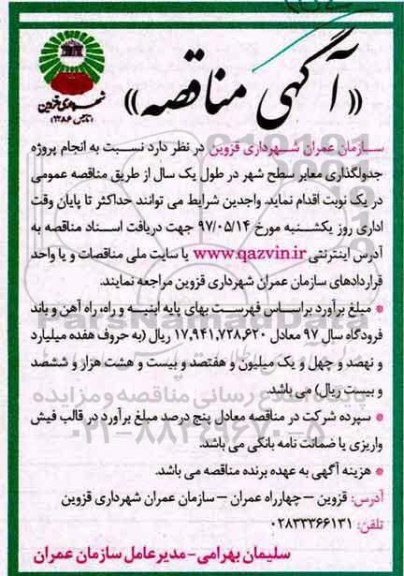 شهرداری قزوین
(تأسیس ۱۲۸۶)
«آگهی مناقصه»
سازمان عمران شهرداری قزوین در نظر دارد نسبت به انجام پروژه
جدولگذاری معابر سطح شهر در طول یک سال از طریق مناقصه عمومی
در یک نوبت اقدام نماید. واجدین شرایط می توانند حداکثر تا پایان وقت
اداری روز یکشنبه مورخ ۹۷/۰۵/۱۴ جهت دریافت اسناد مناقصه به
آدرس اینترنتی www.qazvin.ir یا سایت ملی مناقصات و یا واحد
قراردادهای سازمان عمران شهرداری قزوین مراجعه نمایند.
* مبلغ برآورد براساس فهرست بهای پایه ابنیه و راه، راه آهن و باند
فرودگاه سال ۹۷ معادل ۱۷,۹۴۱,۷۲۸,۶۲۰ ریال (به حروف هفده میلیارد
و نهصد و چهل و یک میلیون و هفتصد و بیست و هشت هزار و ششصد
و بیست ریال) می باشد.
* سپرده شرکت در مناقصه معادل پنج درصد مبلغ برآورد در قالب فیش
واریزی یا ضمانت نامه بانکی می باشد.
* هزینه آگهی به عهده برنده مناقصه می باشد.
آدرس: قزوین – چهارراه عمران – سازمان عمران شهرداری قزوین
تلفن: ۰۲۸۳۳۳۶۶۱۳۱
سلیمان بهرامی-مدیرعامل سازمان عمران
پایگاه اطلاع رسانی مناقصه و مزایده
۰۲۱-۸۸۳۴۹۶۷۰-۵